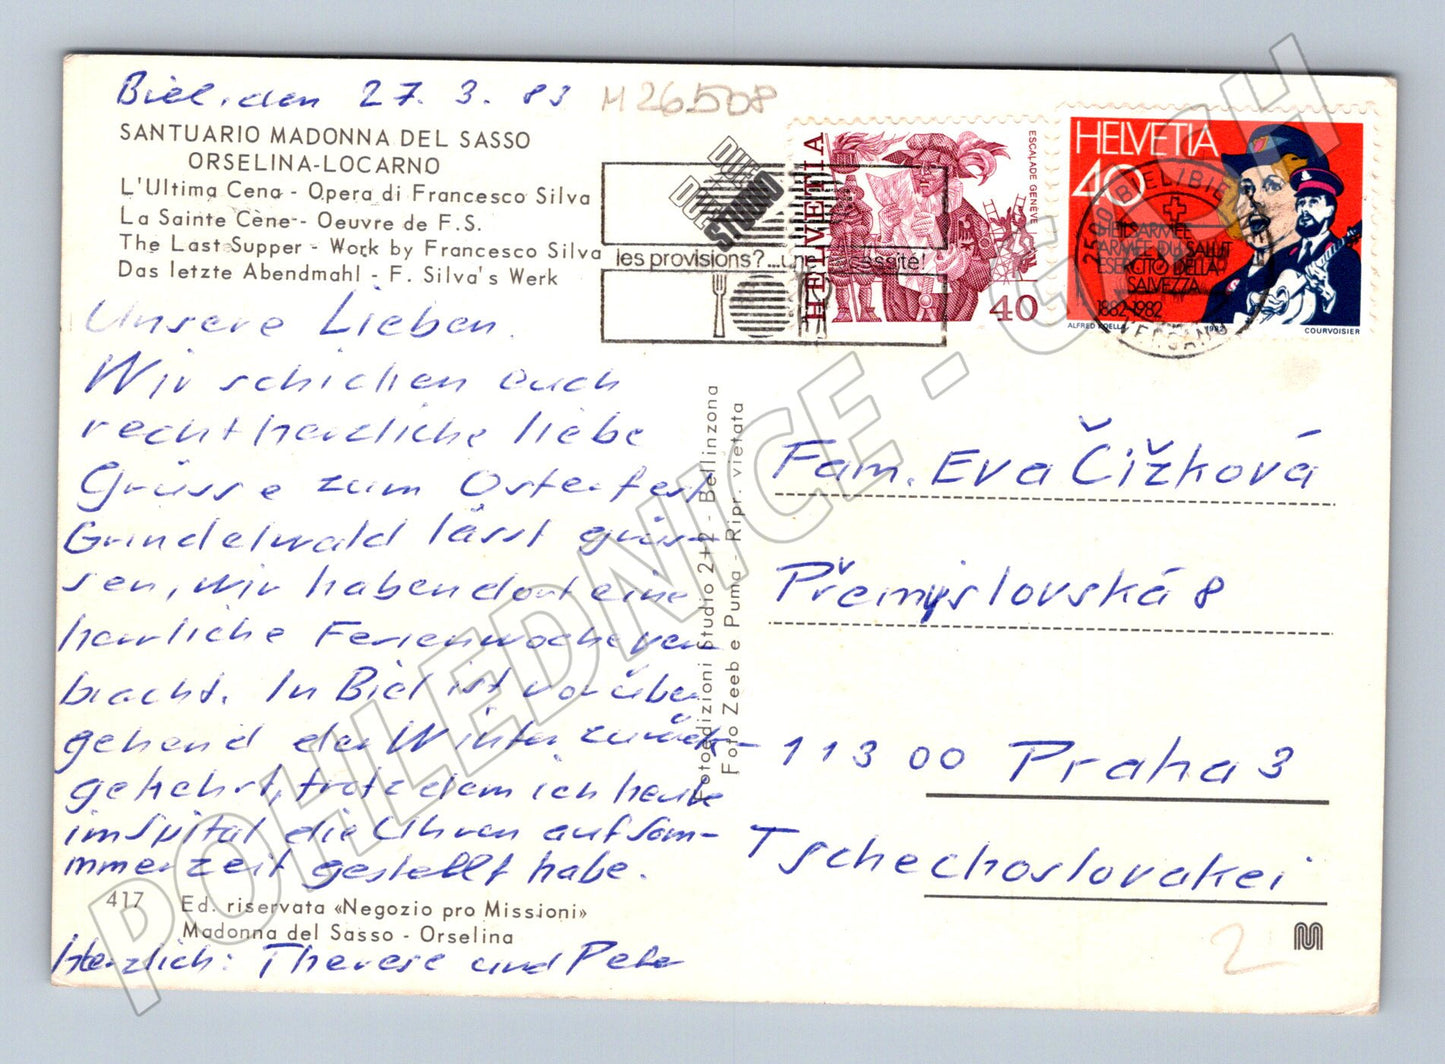 Biel, den 27. 3. 83
M 26508
SANTUARIO MADONNA DEL SASSO
ORSELINA-LOCARNO
L'Ultima Cena - Opera di Francesco Silva
La Sainte Cène - Oeuvre de F.S.
The Last Supper - Work by Francesco Silva
Das letzte Abendmahl - F. Silva's Werk
Unsere Lieben.
Wir schicken euch
recht herzliche liebe
Grüsse zum Osterfest
Grindelwald lässt grüs-
sen, wir haben dort eine
herrliche Ferienwoche ver-
bracht. In Biel ist vorüber-
gehend der Winter zurück-
gekehrt, trotzdem ich heute
im Spital die Uhren auf Som-
mmerzeit gestellt habe.
417
Ed. riservata «Negozio pro Missioni»
Madonna del Sasso - Orselina
Herzlich: Therese und Peter
Fotoedizioni Studio 2+2 - Bellinzona
Foto Zeeb e Puma - Ripr. vietata
STUDIO
les provisions?...une nécessité!
HELVETIA
ESCALADE GENÈVE
40
HELVETIA
40
HEILSARMEE
ARMÉE DU SALUT
ESERCITO DELLA
SALVEZZA
1882-1982
ALFRED KOELLA
1983
COURVOISIER
2500 BIEL/BIENNE
VERSAND
Fam. Eva Čížková
Přemyslovská 8
113 00 Praha 3
Tschechoslovakei
2
M
POHLEDNICE - CZ.CH